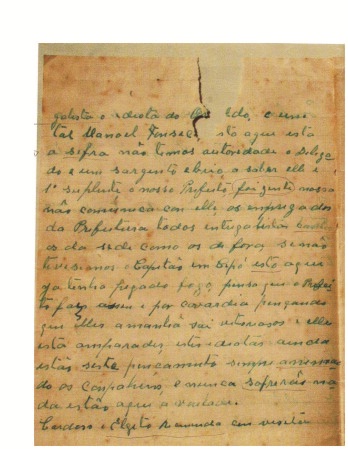 galista o idiota do Ge Edo, e um
tal Manoel Fonsec sto aqui está
a sifra não temos autoridade o Delega
do e um sargento ebrio, a saber elle e
1º suplente o nosso Prefeito foi gente nossa
não comunica con elle, os empregados
da Prefeitura todos integralistas
os da sede como os de fora, se não
tivessemos o Capitão em Sipó isto aqui
ja tinha pegado fogo, penso que o Prefei
to faz assim e por covardia pensando
que elles amanhã sai vitoriosos e elle
está amparado, estes idiotas ainda
estão neste pensamento sempre
do os companheiros, e nunca sofrerão na
da estão aqui a vontade.
Cardoso e Elpito Raimundo em visita